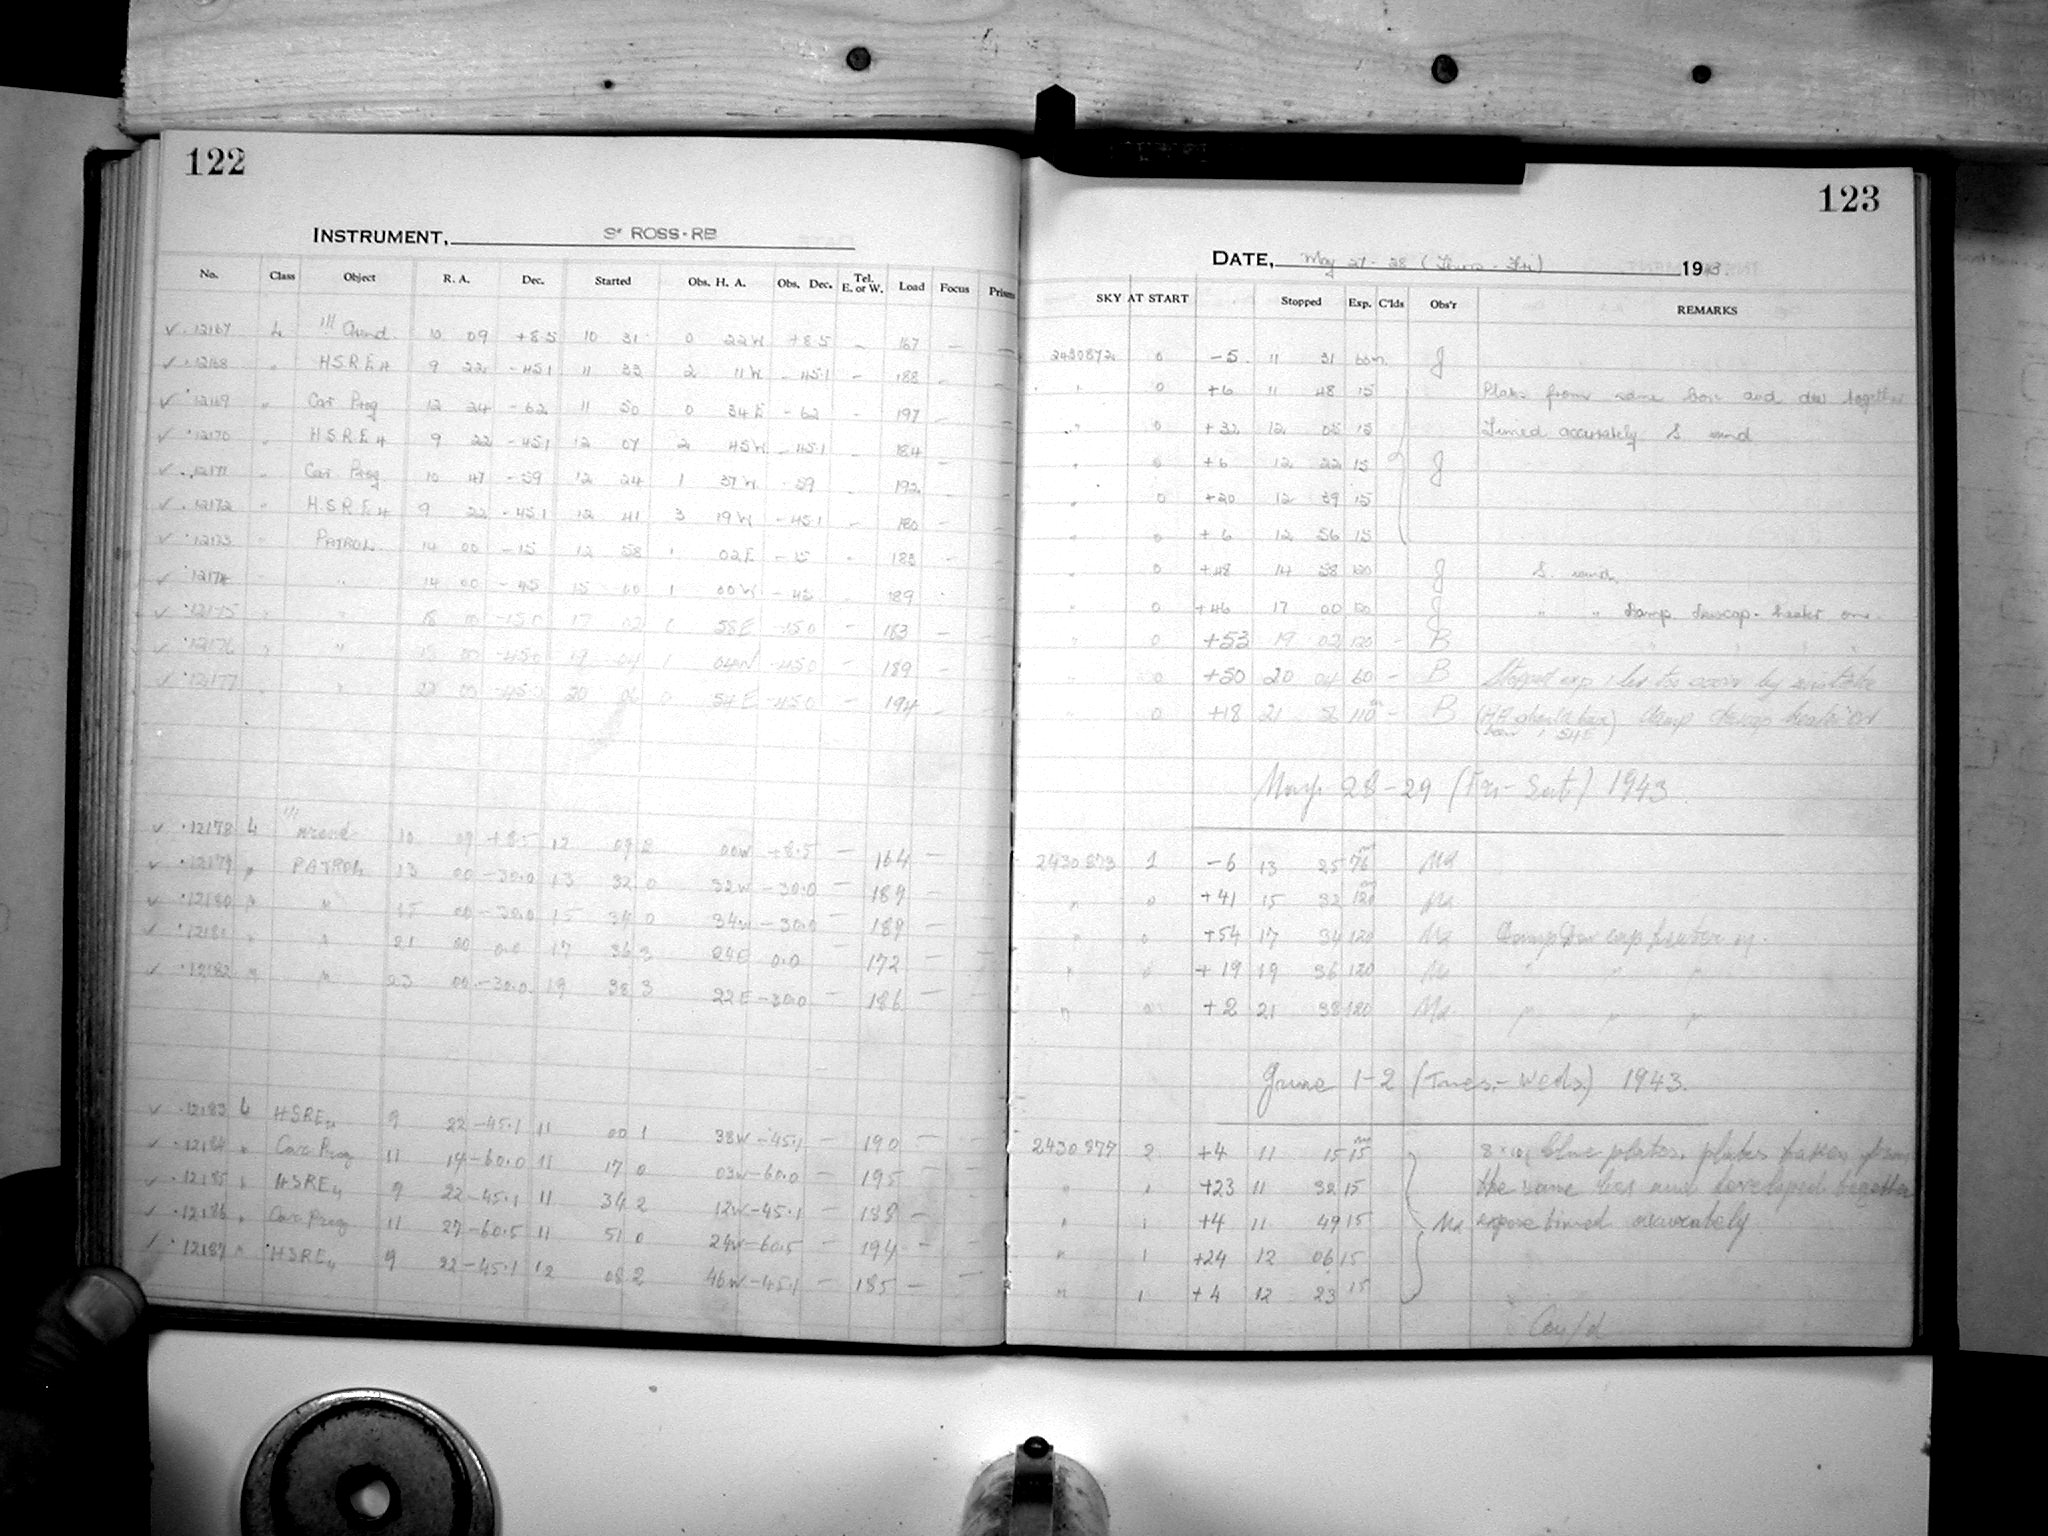 122
INSTRUMENT, 3" ROSS-RB
No. Class Object R. A. Dec. Started Obs. H. A. Obs. Dec. Tel. E. or W. Load Focus Prism
✓ 12167 L 10 09 +8.5 10 31 0 22W +8.5 – 167 – –
✓ 12168 " HSRE4 9 22 -45.1 11 33 2 11W -45.1 – 188 – –
✓ 12169 " Car Prog 12 24 -62 11 50 0 34E -62 – 197 – –
✓ 12170 " HSRE4 9 22 -45.1 12 07 2 45W -45.1 – 184 – –
✓ 12171 " Car Prog 10 47 -59 12 24 1 37W -59 – 192 – –
✓ 12172 " HSRE4 9 22 -45.1 12 41 3 19W -45.1 – 180 – –
✓ 12173 " PATROL 14 00 -15 12 58 1 02E -15 – 183 – –
✓ 12174 " " 14 00 -45 15 00 1 00W -45 – 189 – –
✓ 12175 " " 18 00 -15.0 17 02 1 58E -15.0 – 183 – –
✓ 12176 " " 18 00 -45.0 19 04 1 04W -45.0 – 189 – –
✓ 12177 " " 22 00 -45.0 20 06 0 54E -45.0 – 194 – –
✓ 12178 L 10 09 +8.5 12 09 2 00W +8.5 – 164 –
✓ 12179 " PATROL 13 00 -30.0 13 32 0 32W -30.0 – 189 – –
✓ 12180 " " 15 00 -30.0 15 34 0 34W -30.0 – 189 – –
✓ 12181 " " 21 00 0.0 17 36 3 24E 0.0 – 172 – –
✓ 12182 " " 23 00 -30.0 19 38 3 22E -30.0 – 186 – –
✓ 12183 L HSRE4 9 22 -45.1 11 00 1 38W -45.1 – 190 – –
✓ 12184 " Car Prog 11 14 -60.0 11 17 0 03W -60.0 – 195 – –
✓ 12185 " HSRE4 9 22 -45.1 11 34 2 12W -45.1 – 188 – –
✓ 12186 " Car Prog 11 27 -60.5 11 51 0 24W -60.5 – 194 – –
✓ 12187 " HSRE4 9 22 -45.1 12 08 2 46W -45.1 – 185 – –
123
DATE, May 27-28 (Thurs-Fri) 1943
SKY AT START Stopped Exp. C'lds Obs'r REMARKS
2430872 0 -5 11 31 60m J
" 0 +6 11 48 15 Plates from same box and dev together
" 0 +32 12 05 15 Timed accurately S. wind
" 0 +6 12 22 15 J
" 0 +20 12 39 15
" 0 +6 12 56 15
" 0 +48 14 58 120 J S. wind
" 0 +46 17 00 120 J " " Damp Dewcap heater on.
" 0 +53 19 02 120 – B " " " "
" 0 +50 20 04 60 – B Stopped exp 1 hr too soon by mistake
" 0 +18 21 56 110m – B (HA should have been 1 54E) damp dewcap heater on
May 28-29 (Fri-Sat) 1943
2430873 1 -6 13 25 76m Md
" 0 +41 15 32 120m Md
" 0 +54 17 34 120 Md Damp Dew cap heater on.
" 0 +19 19 36 120 Md " " "
" 0 +2 21 38 120 Md " " "
June 1-2 (Tues.-Weds.) 1943.
2430877 2 +4 11 15 15m blue plates. plates taken from
" 1 +23 11 32 15 the same box and developed together
" 1 +4 11 49 15 Md expose timed accurately
" 1 +24 12 06 15
" 1 +4 12 23 15
Con/d